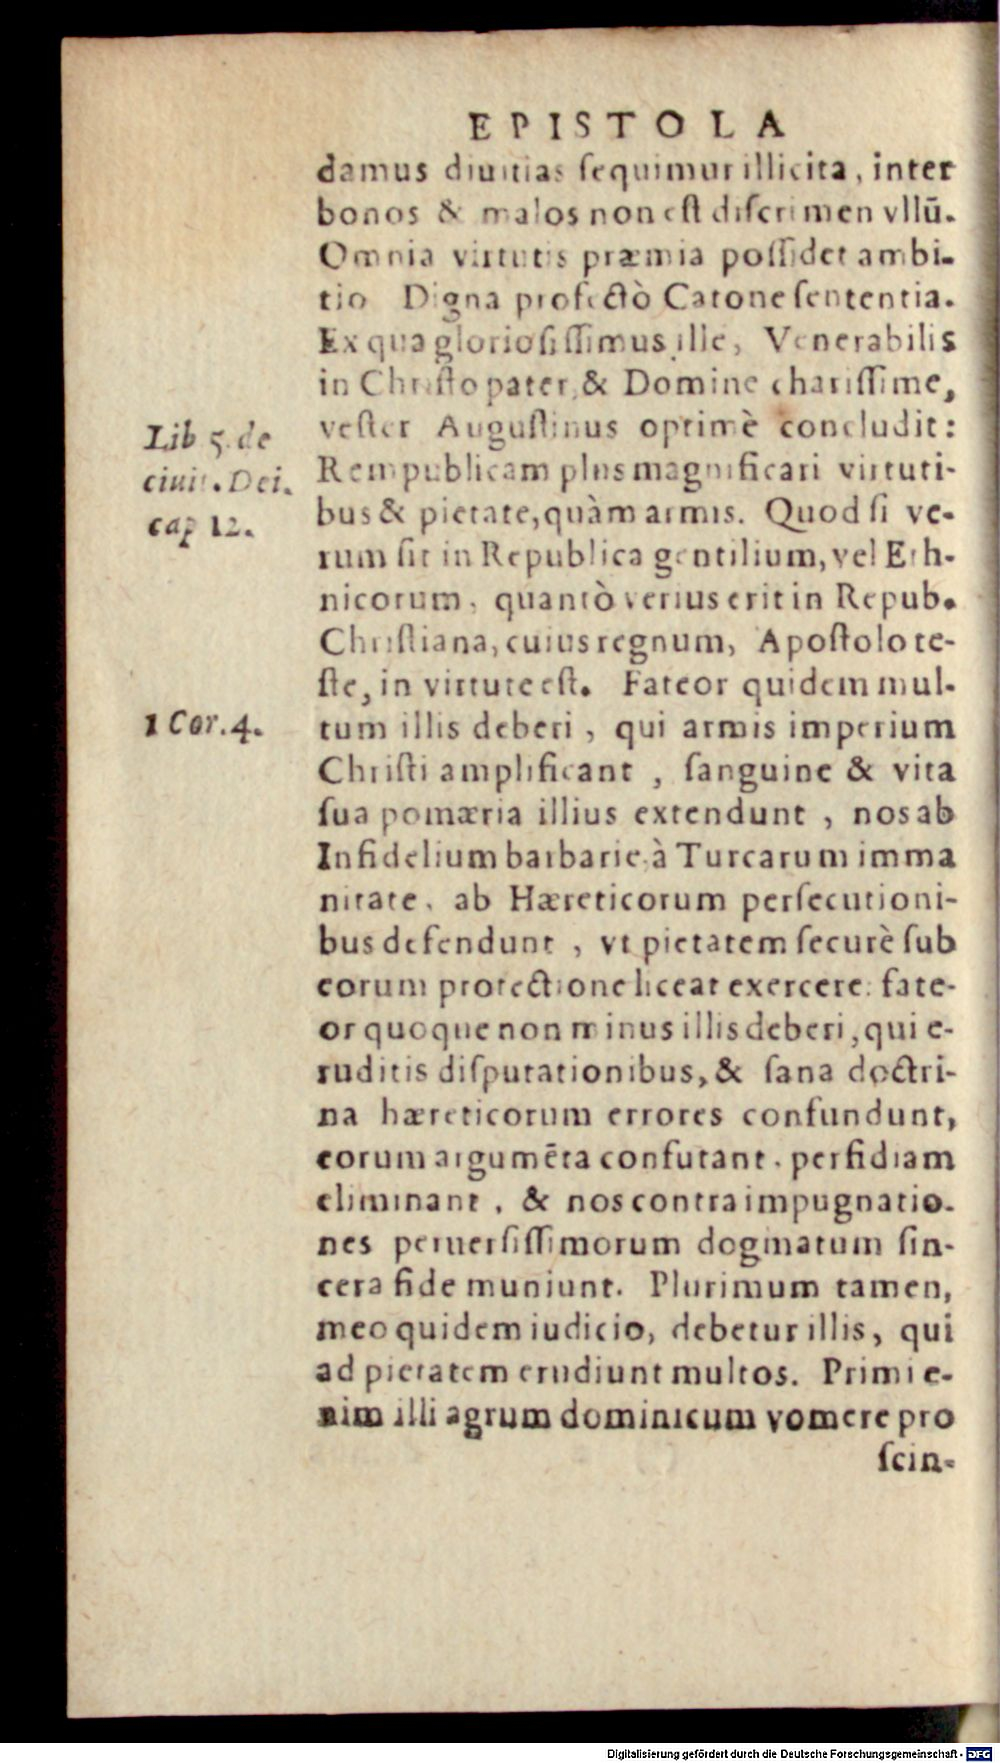 EPISTOLA
damus diuitias ſequimur illicita, inter
bonos & malos non eſt diſcrimen vllū.
Omnia virtutis præmia poſſidet ambi-
tio Digna profectò Catone ſententia.
Ex qua glorioſiſſimus ille, Venerabilis
in Chriſto pater, & Domine chariſſime,
veſter Auguſtinus optimè concludit:
Lib 5. de
ciuit. Dei.
cap 12.
Rempublicam plus magnificari virtuti-
bus & pietate, quàm armis. Quod ſi ve-
rum ſit in Republica gentilium, vel Eth-
nicorum, quantò verius erit in Repub.
Chriſtiana, cuius regnum, Apoſtolo te-
ſte, in virtute eſt. Fateor quidem mul-
1 Cor. 4.
tum illis deberi, qui armis imperium
Chriſti amplificant, ſanguine & vita
ſua pomæria illius extendunt, nos ab
Infidelium barbarie, à Turcarum imma
nitate, ab Hæreticorum perſecutioni-
bus defendunt, vt pietatem ſecurè ſub
eorum protectione liceat exercere: fate-
or quoque non minus illis deberi, qui e-
ruditis diſputationibus, & ſana doctri-
na hæreticorum errores confundunt,
eorum argumēta confutant, perfidiam
eliminant, & nos contra impugnatio-
nes peruerſiſſimorum dogmatum ſin-
cera fide muniunt. Plurimum tamen,
meo quidem iudicio, debetur illis, qui
ad pietatem erudiunt multos. Primi e-
nim illi agrum dominicum vomere pro
ſcin-
Digitalisierung gefördert durch die Deutsche Forschungsgemeinschaft - DFG